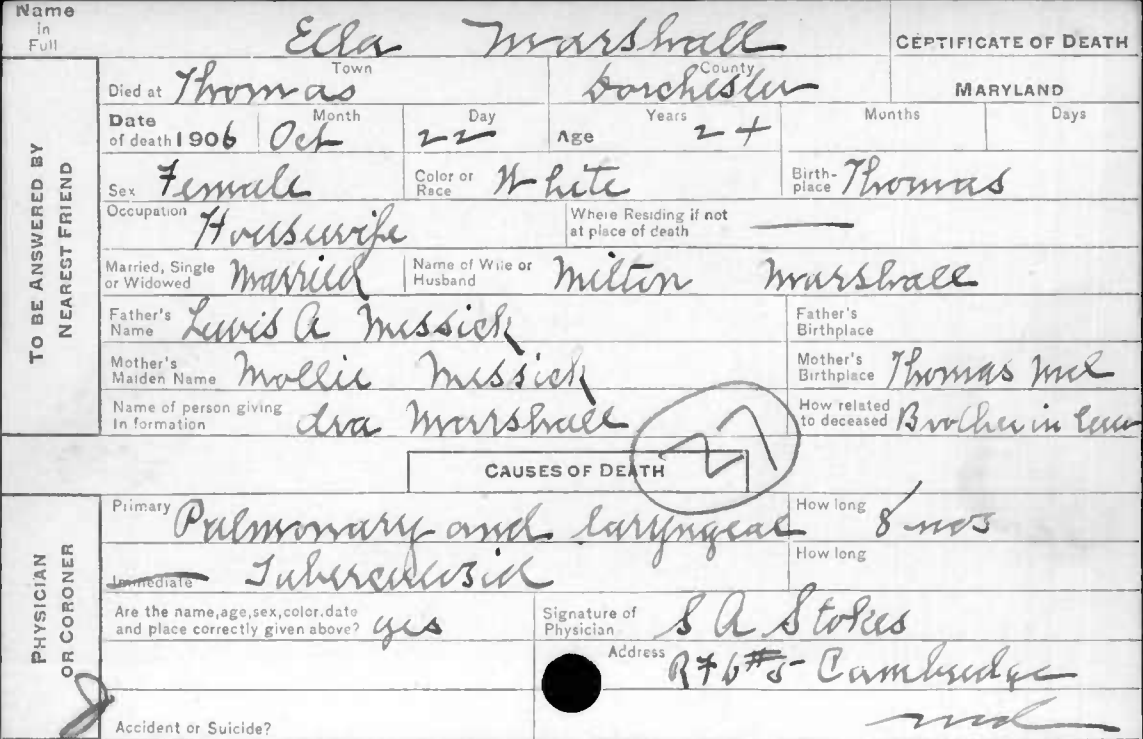 Name in Full Ella Marshall CERTIFICATE OF DEATH
TO BE ANSWERED BY NEAREST FRIEND
Died at Thomas Town Dorchester County MARYLAND
Date of death 1906 Month Oct Day 22 Age Years 24 Months Days
Sex Female Color or Race White Birthplace Thomas
Occupation Housewife Where Residing if not at place of death —
Married, Single or Widowed Married Name of Wife or Husband Milton Marshall
Father's Name Lewis A Messick Father's Birthplace
Mother's Maiden Name Mollie Messick Mother's Birthplace Thomas Md
Name of person giving In formation Ira Marshall How related to deceased Brother in law
27
CAUSES OF DEATH
PHYSICIAN OR CORONER
Primary Pulmonary and laryngeal How long 8 mos
Immediate Tuberculosis How long
Are the name, age, sex, color, date and place correctly given above? yes Signature of Physician S A Stokes
Address Cambridge
Md
Accident or Suicide?